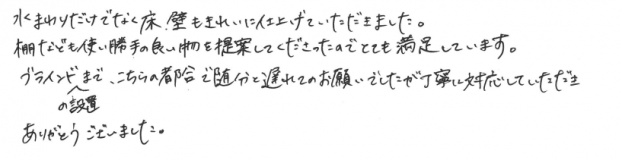 水まわりだけでなく床、壁もきれいに仕上げていただきました。
棚なども使い勝手の良い物を提案してくださったのでとても満足しています。
ブラインドの設置まで、こちらの都合で随分と遅れてのお願いでしたが丁寧に対応していただき
ありがとうございました。